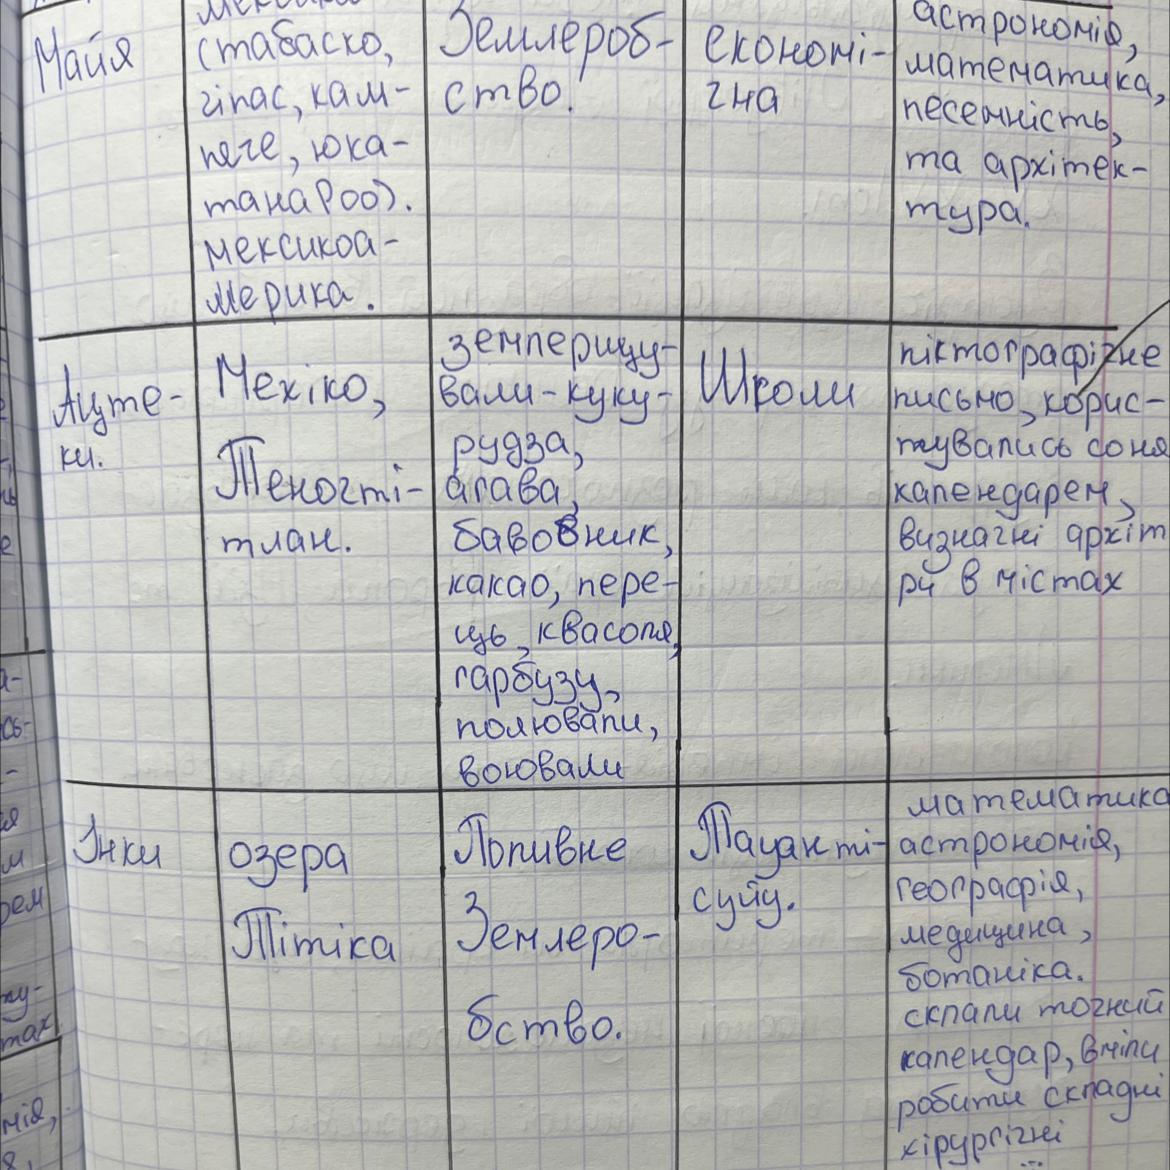 Майя
мексика
(табаско,
чіпас, кам-
пече, юка-
тана Роо).
мексикоа-
мерика.
Землероб-
ство.
економі-
чна
астрономія,
математика,
писемність,
та архітек-
тура.
Ацте-
ки.
Мехіко,
Теночті-
тлан.
вали-куку-
рудза,
агава,
бавовник,
какао, пере-
ць, квасоля,
гарбузу,
полювали,
воювали
Школи
піктографічне
письмо, корис-
тувались соня
календарем,
визначні архіт
ри в містах
Інки
озера
Тітіка
Поливне
Землеро-
бство.
Тауанті-
суйу.
математика
астрономія,
географія,
медицина,
ботаніка.
склали точний
календар, вміли
робити складні
хірургічні